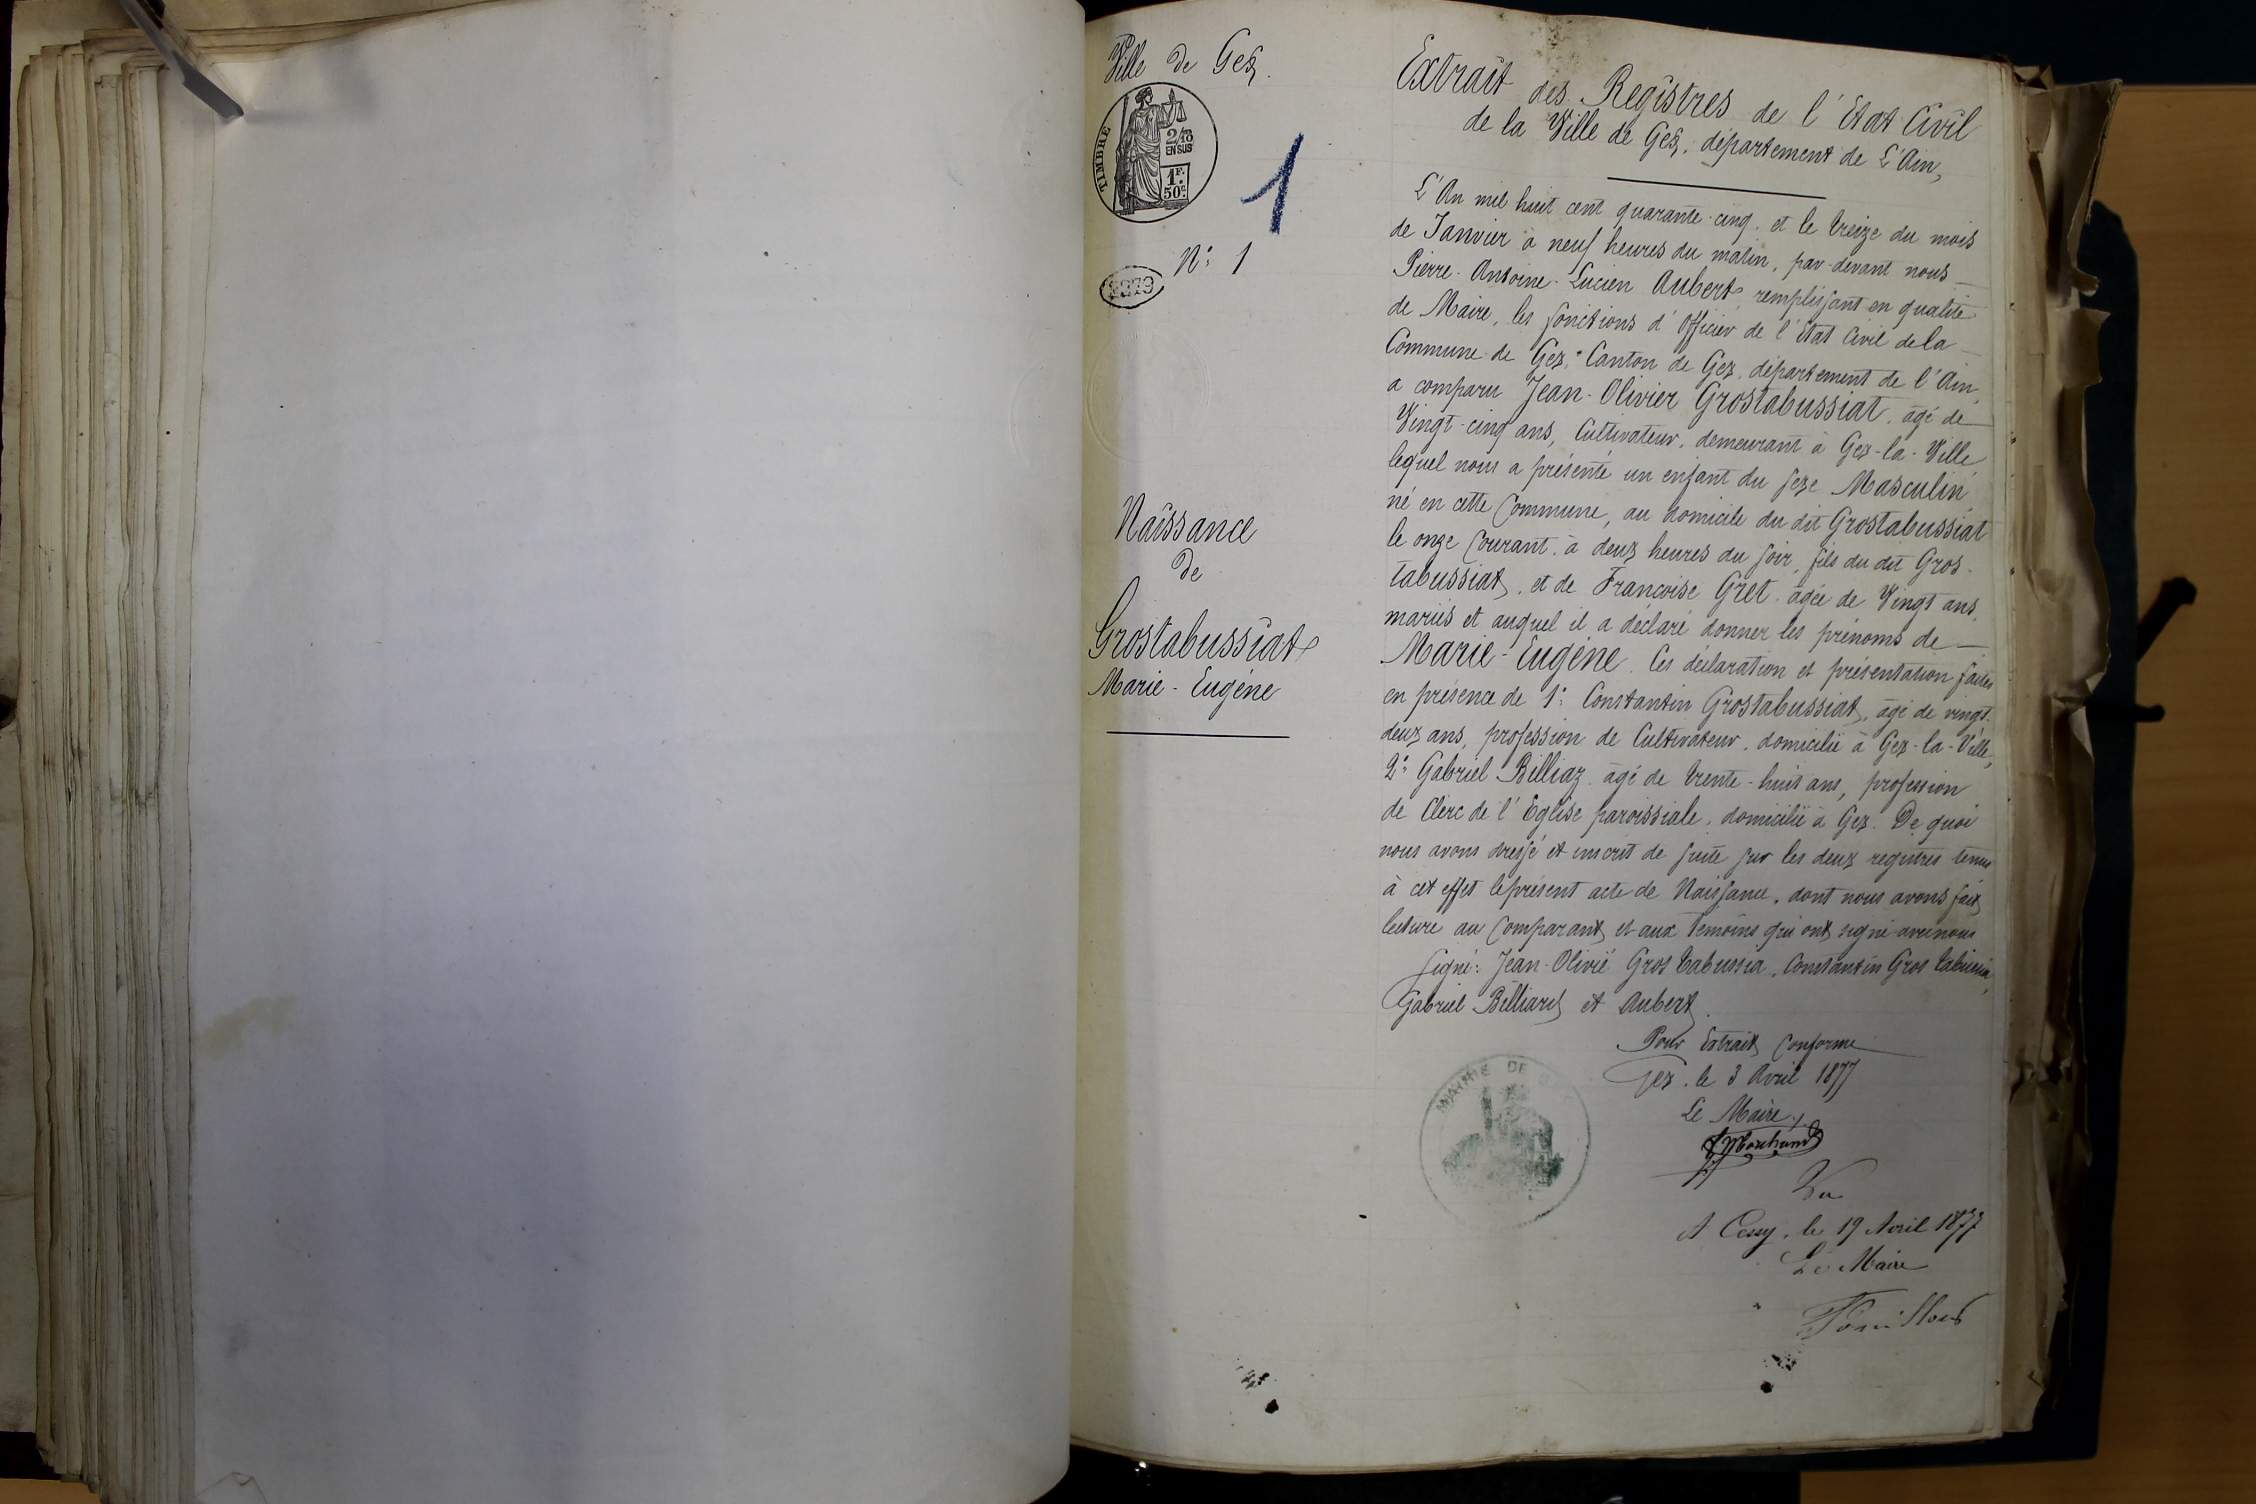 Ville de Gex.
TIMBRE
2/10
EN SUS
1F.
50c.
1
N° 1
Naissance
de
Grostabussiat
Marie-Eugène
Extrait des Registres de l'Etat Civil
de la Ville de Gex, département de L'Ain,
L'An mil huit cent quarante-cinq et le treize du mois
de Janvier à neuf heures du matin, par-devant nous
Pierre-Antoine-Lucien Aubert remplissant en qualité
de Maire, les fonctions d'officier de l'Etat Civil de la
Commune de Gex, Canton de Gex, département de l'Ain,
a comparu Jean-Olivier Grostabussiat, âgé de
Vingt-cinq ans, Cultivateur, demeurant à Gex-la-Ville
lequel nous a présenté un enfant du sexe Masculin
né en cette Commune, au domicile du dit Grostabussiat
le onze Courant, à deux heures du soir, fils du dit Gros-
tabussiat, et de Francoise Gret âgée de Vingt ans,
mariés et auquel il a déclaré donner les prénoms de
Marie-Eugène. Ces déclaration et présentation faites
en présence de 1° Constantin Grostabussiat, âgé de vingt-
deux ans, profession de Cultivateur, domicilié à Gex-la-Ville,
2° Gabriel Billiaz âgé de trente-huit ans, profession
de Clerc de l'Eglise paroissiale, domicilié à Gex. De quoi
nous avons dressé et inscrit de suite sur les deux registres tenus
à cet effet le présent acte de Naissance, dont nous avons fait
lecture au Comparant et aux témoins qui ont signé avec nous
Signé: Jean-Olivié Gros tabussia, Constantin Gros tabussia,
Gabriel Billiard et Aubert.
Pour Extrait Conforme
Gex, le 3 Avril 1877
Le Maire,
MAIRIE DE
Vu
A Cessy, le 19 Avril 1877
Le Maire